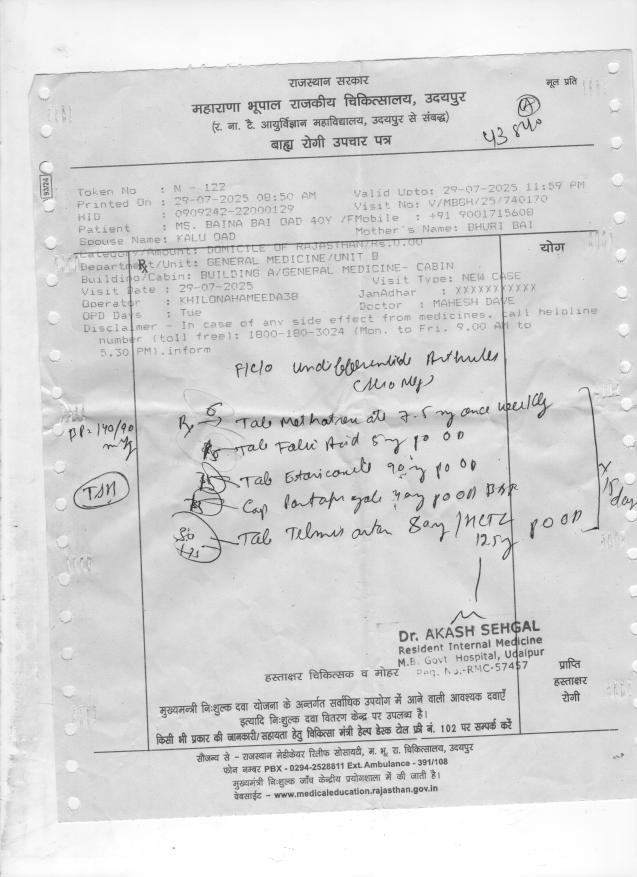 राजस्थान सरकार
मूल प्रति
महाराणा भूपाल राजकीय चिकित्सालय, उदयपुर
(र. ना. टै. आयुर्विज्ञान महाविद्यालय, उदयपुर से संबद्ध)
बाह्य रोगी उपचार पत्र
A
43840
93724
Token No : N - 122
Printed On : 29-07-2025 08:50 AM Valid Upto: 29-07-2025 11:59 PM
HID : 0909242-22000129 Visit No: V/MBGH/25/740170
Patient : MS. BAINA BAI DAD 40Y /F Mobile : +91 9001715608
Spouse Name: KALU DAD Mother's Name: BHURI BAI
Category/Amount: DOMICILE OF RAJASTHAN/RS.0.00
योग
Department/Unit: GENERAL MEDICINE/UNIT B
Building/Cabin: BUILDING A/GENERAL MEDICINE- CABIN
Visit Date : 29-07-2025 Visit Type: NEW CASE
Operator : KHILONAHAMEEDA38 JanAadhar : XXXXXXXXXXX
OPD Days : Tue Doctor : MAHESH DAVE
Disclaimer - In case of any side effect from medicines, call helpline
number (toll free): 1800-180-3024 (Mon. to Fri. 9.00 AM to
5.30 PM).inform
Arthritis
BP = 140/90
Rx Tab 7.5 mg once weekly
Tab Folic Acid 5mg PO OD
Tab 90mg PO OD
Cap 40mg PO OD BBF
Tab Telmisartan 80mg / HCTZ
12.5mg PO OD
x 15 days
Dr. AKASH SEHGAL
Resident Internal Medicine
M.B. Govt Hospital, Udaipur
Reg. No.-RMC-57457
हस्ताक्षर चिकित्सक व मोहर
प्राप्ति
हस्ताक्षर
रोगी
मुख्यमन्त्री निःशुल्क दवा योजना के अन्तर्गत सर्वाधिक उपयोग में आने वाली आवश्यक दवाएँ
इत्यादि निःशुल्क दवा वितरण केन्द्र पर उपलब्ध है।
किसी भी प्रकार की जानकारी/सहायता हेतु चिकित्सा मंत्री हेल्प डेस्क टोल फ्री नं. 102 पर सम्पर्क करें
सौजन्य से - राजस्थान मेडीकेयर रिलीफ सोसायटी, म. भू. रा. चिकित्सालय, उदयपुर
फोन नम्बर PBX - 0294-2528811 Ext. Ambulance - 391/108
मुख्यमंत्री निःशुल्क जाँच केन्द्रीय प्रयोगशाला में की जाती है।
वेबसाईट - www.medicaleducation.rajasthan.gov.in